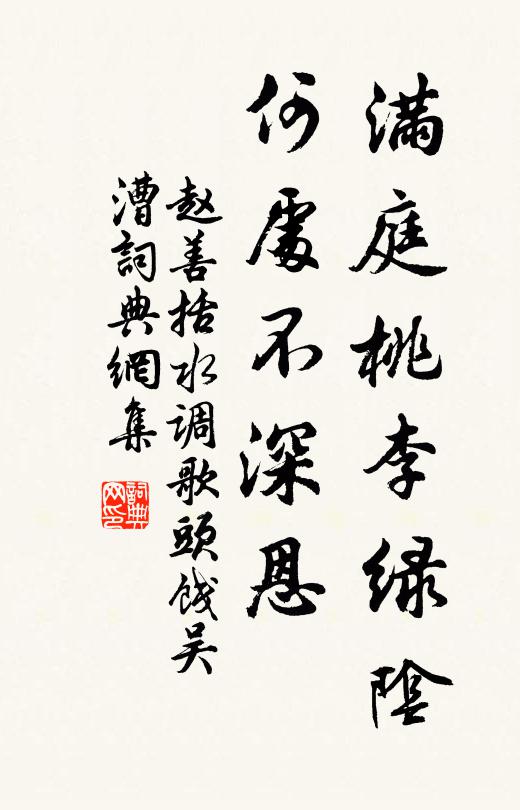 满庭桃李绿阴
何处不深恩
赵善括水调歌头饯吴
漕词典網集
詞典网印